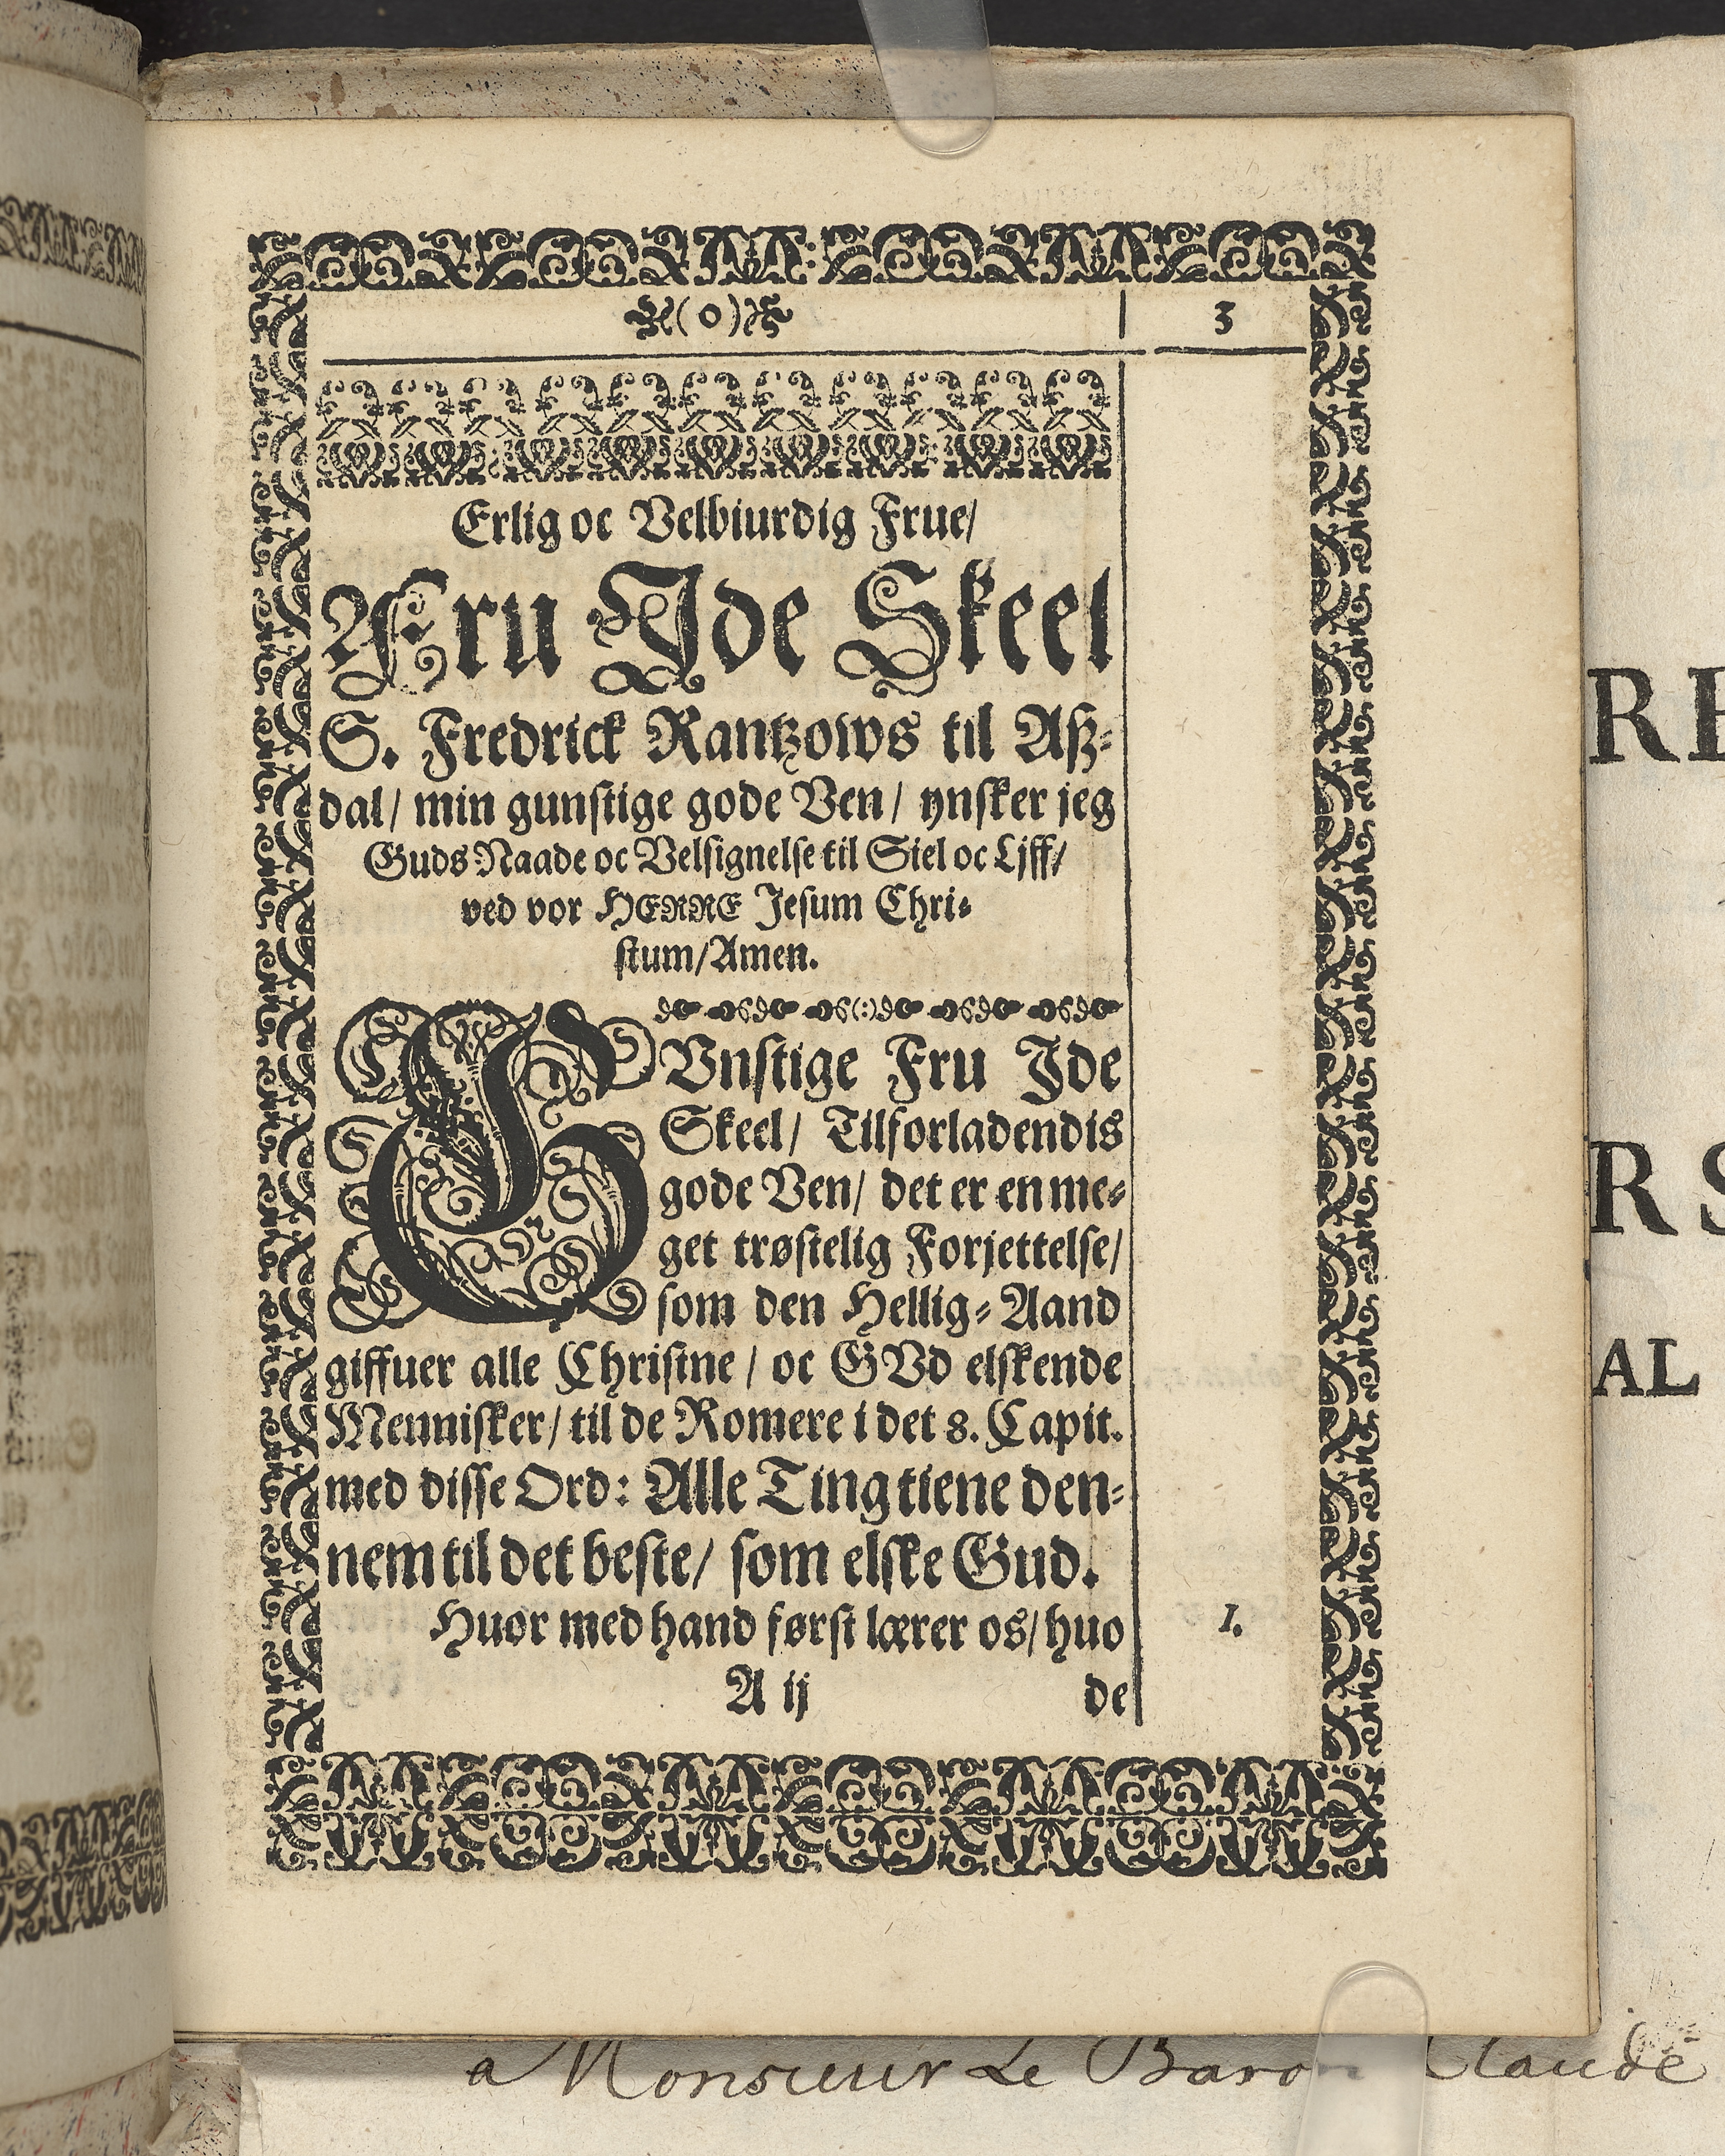 (o) 3
Erlig oc Velbiurdig Frue/
Fru Ide Skeel
S. Fredrick Rantzows til Aß-
dal/ min gunstige gode Ven/ ynsker jeg
Guds Naade oc Velsignelse til Siel oc Liff/
ved vor HERRE Jesum Chri-
stum/ Amen.
GVnstige Fru Ide
Skeel/ Tilforladendis
gode Ven/ det er en me-
get trøstelig Forjettelse/
som den Hellig-Aand
giffuer alle Christne/ oc GVd elskende
Mennisker/ til de Romere i det 8. Capit.
med disse Ord: Alle Ting tiene den-
nem til det beste/ som elske Gud.
Huor med hand først lærer os/ huo 1.
A ij de
RE
RS
AL
a Monsieur Le Baron Claude